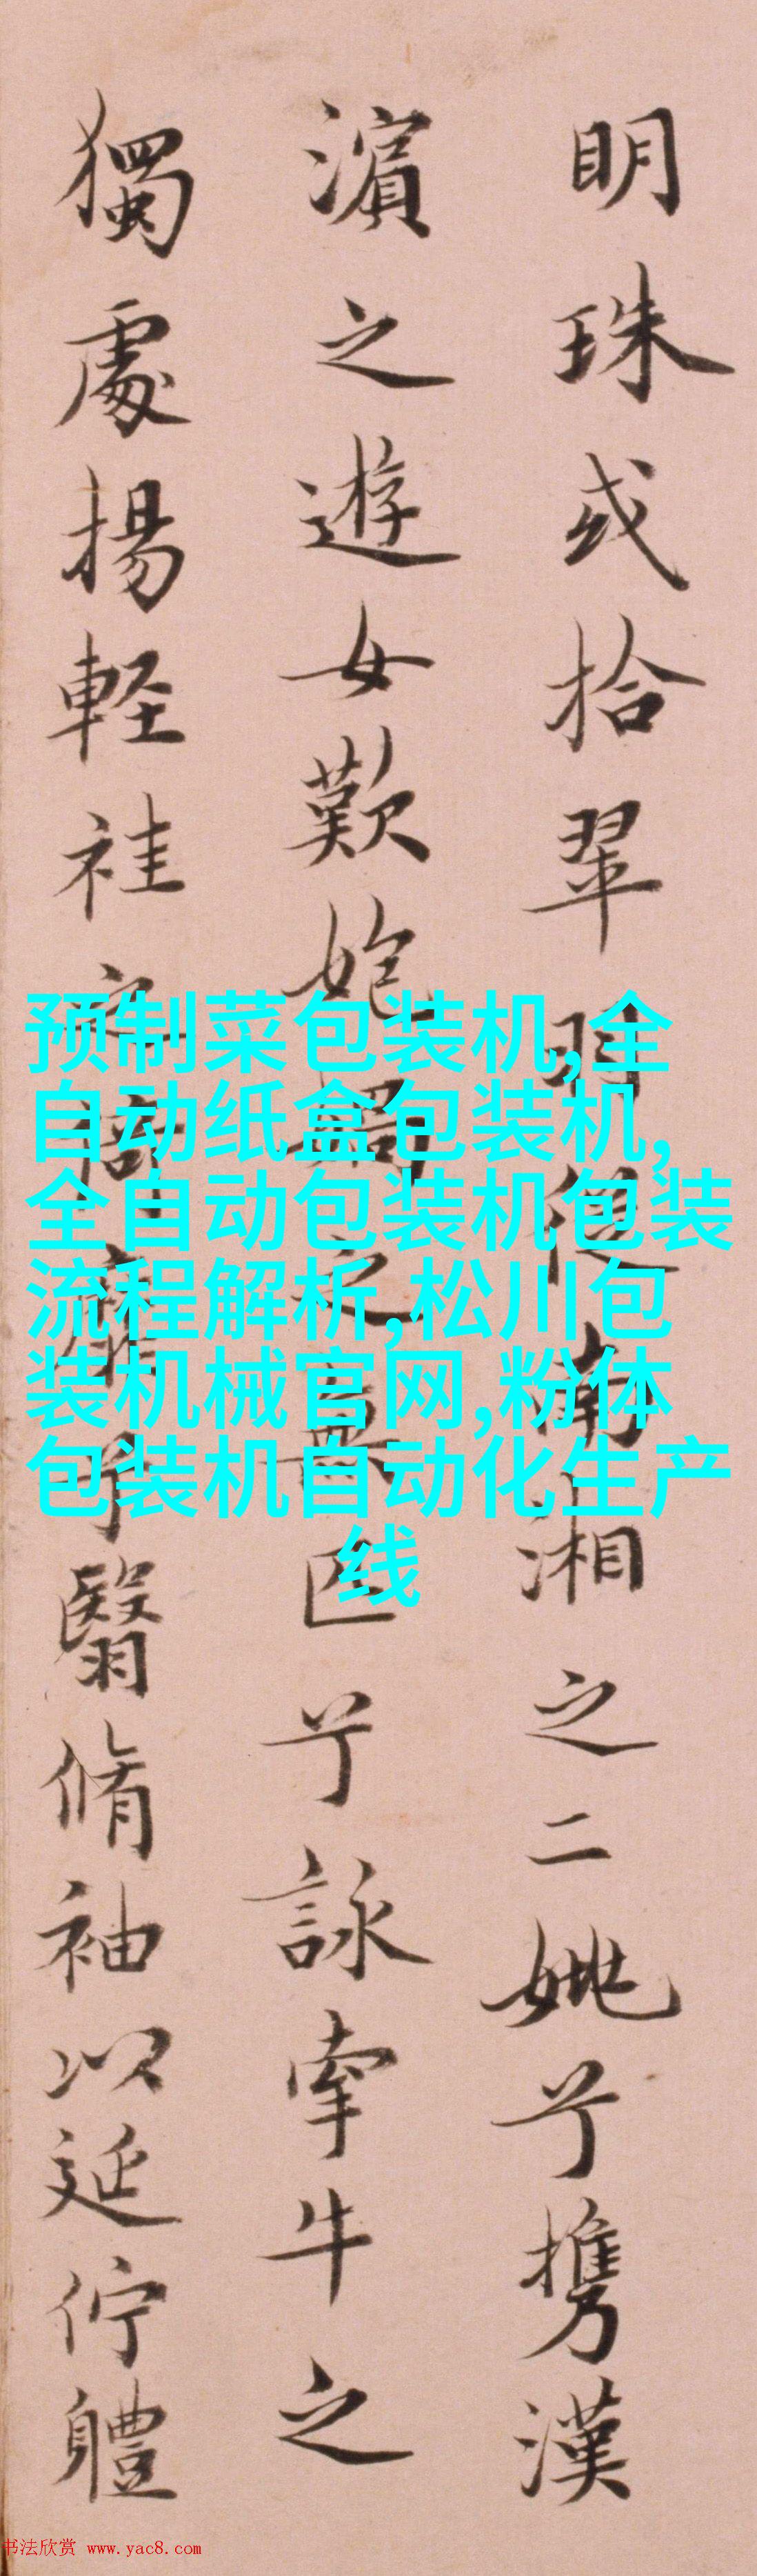 明珠或拾翠羽從南湘之二兮携漢
濵之遊女歎之無匹兮詠牽牛之
獨處揚軽袿之靡兮翳脩袖以延佇體
预制菜包装机,全
自动纸盒包装机,
全自动包装机包装
流程解析,松川包
装机械官网,粉体
包装机自动化生产
线
书法欣赏 www.yac8.com